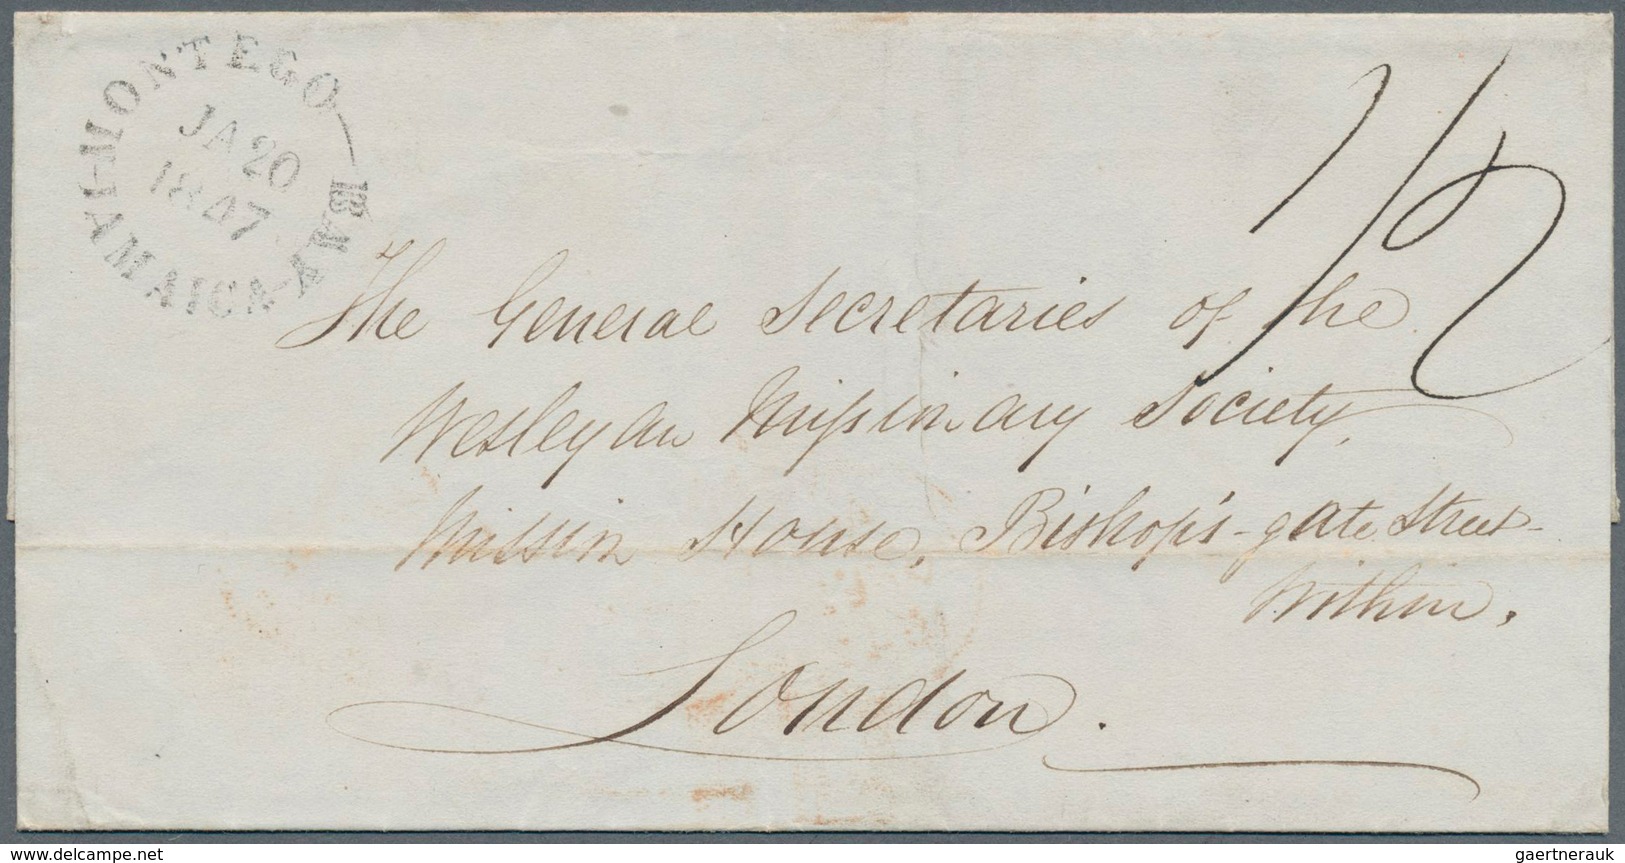 MONTEGO BAY
JAMAICA
JA 20
1847
1/2
The General Secretaries of the
Wesleyan Missionary Society,
Mission House, Bishop's-gate Street
Within,
London.
www.delcampe.net
gaertnerauk